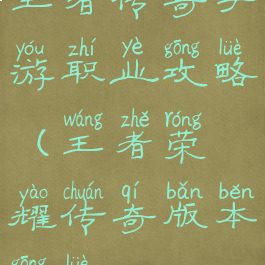 王者传奇手
yóu zhí yè gōng lüè
游职业攻略
wáng zhě róng
（王者荣
yào chuán qí bǎn běn
耀传奇版本
gōng lüè